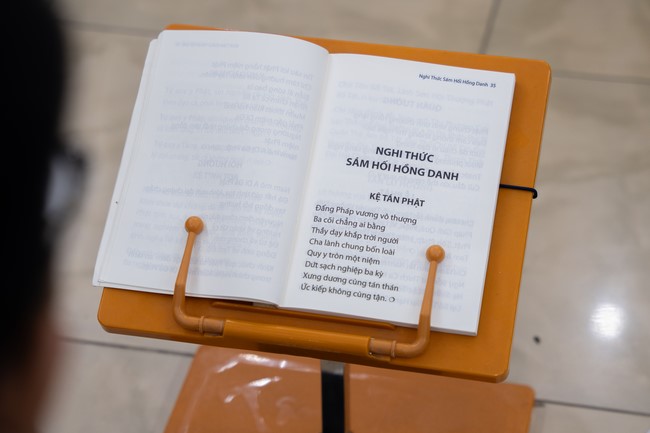 Nghi Thức Sám Hối Hồng Danh 35
NGHI THỨC
SÁM HỐI HỒNG DANH
KỆ TÁN PHẬT
Đấng Pháp vương vô thượng
Ba cõi chẳng ai bằng
Thầy dạy khắp trời người
Cha lành chung bốn loài
Quy y tròn một niệm
Dứt sạch nghiệp ba kỳ
Xưng dương cùng tán thán
Ức kiếp không cùng tận.